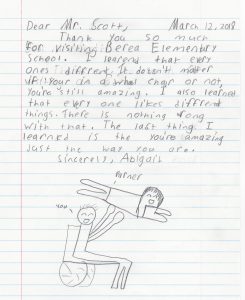 Dear Mr. Scott, March 12, 2018
Thank you so much
for visiting Berea Elementry
School. I learend that every
ones different. It doesn't matter
if your in a wheel chair or not,
you're still amazing. I also learned
that every one likes different
things. There is nothing rong
with that. The last thing I
learned is the you're amazing
Just the way you are.
Sincerely, Abigail
Parner
you